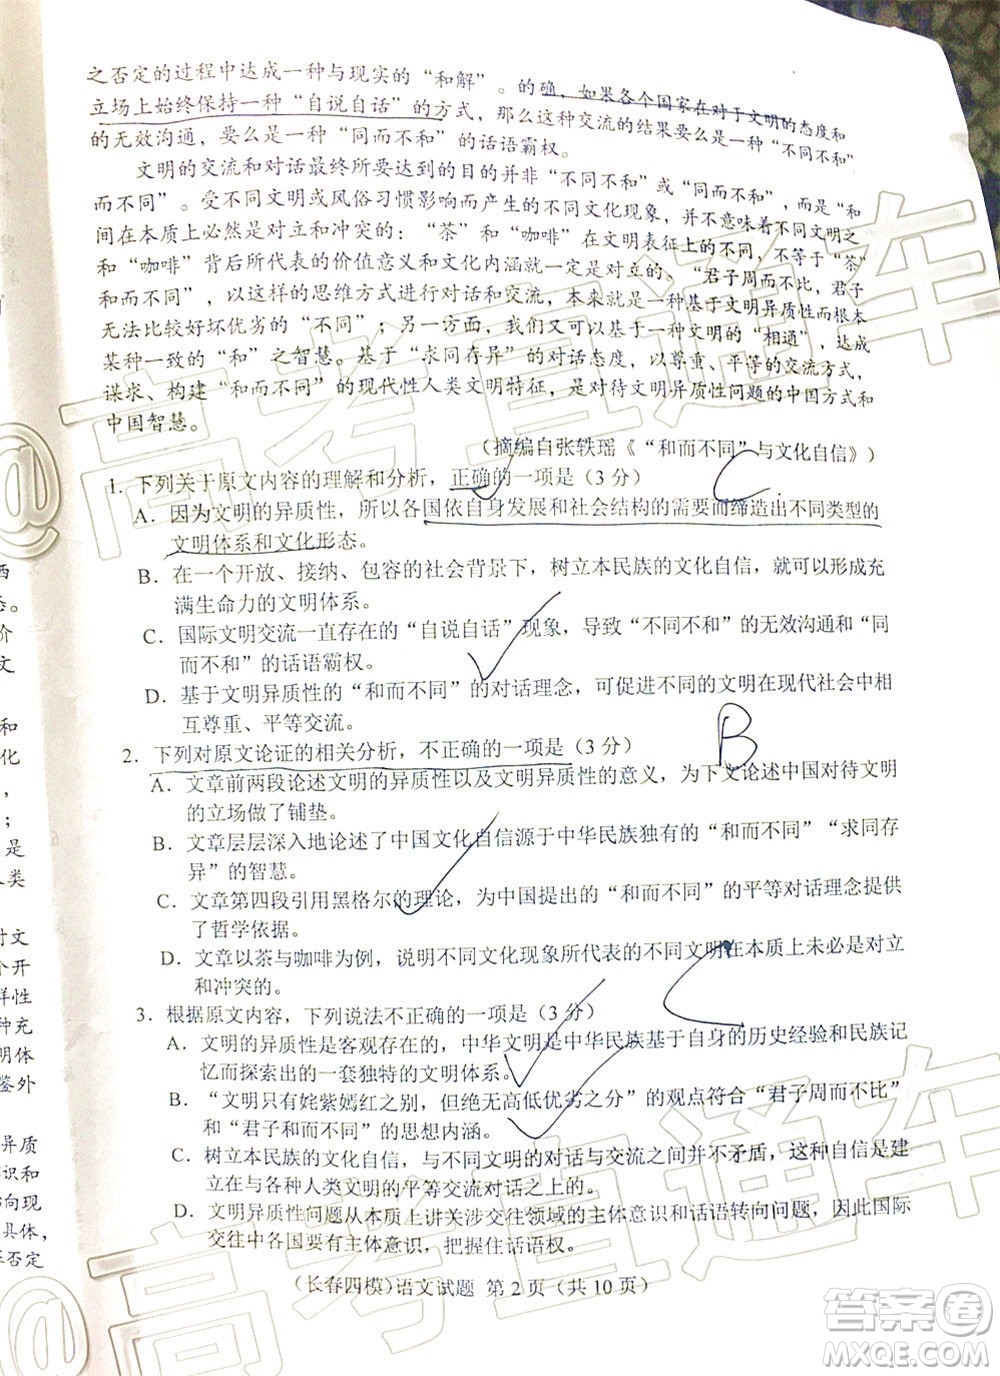 之否定的过程中达成一种与现实的“和解”。的确，如果各个国家在对于文明的态度和
立场上始终保持一种“自说自话”的方式，那么这种交流的结果要么是一种“不同不和”
的无效沟通，要么是一种“同而不和”的话语霸权。
文明的交流和对话最终所要达到的目的并非“不同不和”或“同而不和”，而是“和
而不同”。受不同文明或风俗习惯影响而产生的不同文化现象，并不意味着不同文明之
间在本质上必然是对立和冲突的：“茶”和“咖啡”在文明表征上的不同，不意味“茶”
和“咖啡”背后所代表的价值意义和文化内涵就一定是对立的。“君子周而不比”“君子
和而不同”，以这样的思维方式进行对话和交流，本来就是一种基于文明异质性而根本
无法比较好坏优劣的“不同”；另一方面，我们又可以基于一种文明的“相通”，达成
某种一致的“和”之智慧。基于“求同存异”的对话态度，以尊重、平等的交流方式，
谋求、构建“和而不同”的现代性人类文明特征，是对待文明异质性问题的中国方式和
中国智慧。
（摘编自张轶瑶《“和而不同”与文化自信》）
1．下列关于原文内容的理解和分析，正确的一项是（3 分） C
A．因为文明的异质性，所以各国依自身发展和社会结构的需要而缔造出不同类型的
文明体系和文化形态。
B．在一个开放、接纳、包容的社会背景下，树立本民族的文化自信，就能形成充
满生命力的文明体系。
C．国际文明交流一直存在的“自说自话”现象，导致“不同不和”的无效沟通和“同
而不和”的话语霸权。
D．基于文明异质性的“和而不同”的对话理念，可促进不同的文明在现代社会中相
互尊重、平等交流。
2．下列对原文论证的相关分析，不正确的一项是（3 分） B
A．文章前两段论述文明的异质性以及文明异质性的意义，为下文论述中国对待文明
的立场做了铺垫。
B．文章层层深入地论述了中国文化自信源于中华民族独有的“和而不同”“求同存
异”的智慧。
C．文章第四段引用黑格尔的理论，为中国提出的“和而不同”的平等对话理念提供
了哲学依据。
D．文章以茶与咖啡为例，说明不同文化现象所代表的不同文明在本质上未必是对立
和冲突的。
3．根据原文内容，下列说法不正确的一项是（3 分）
A．文明的异质性是客观存在的，中华文明是中华民族基于自身的历史经验和民族记
忆而探索出的一套独特的文明体系。
B．“文明只有姹紫嫣红之别，但绝无高低优劣之分”的观点符合“君子周而不比”
和“君子和而不同”的思想内涵。
C．树立本民族的文化自信，与不同文明的对话与交流并不矛盾，这种自信是建
立在与各种人类文明的平等交流之上的。
D．文明异质性问题从本质上讲关涉交往领域的主体意识和话语转向问题，因此国际
交往中各国要有主体意识，把握住话语权。
（长春四模）语文试题 第 2 页（共 10 页）
@高考直通车
@高考直通车
答案卷